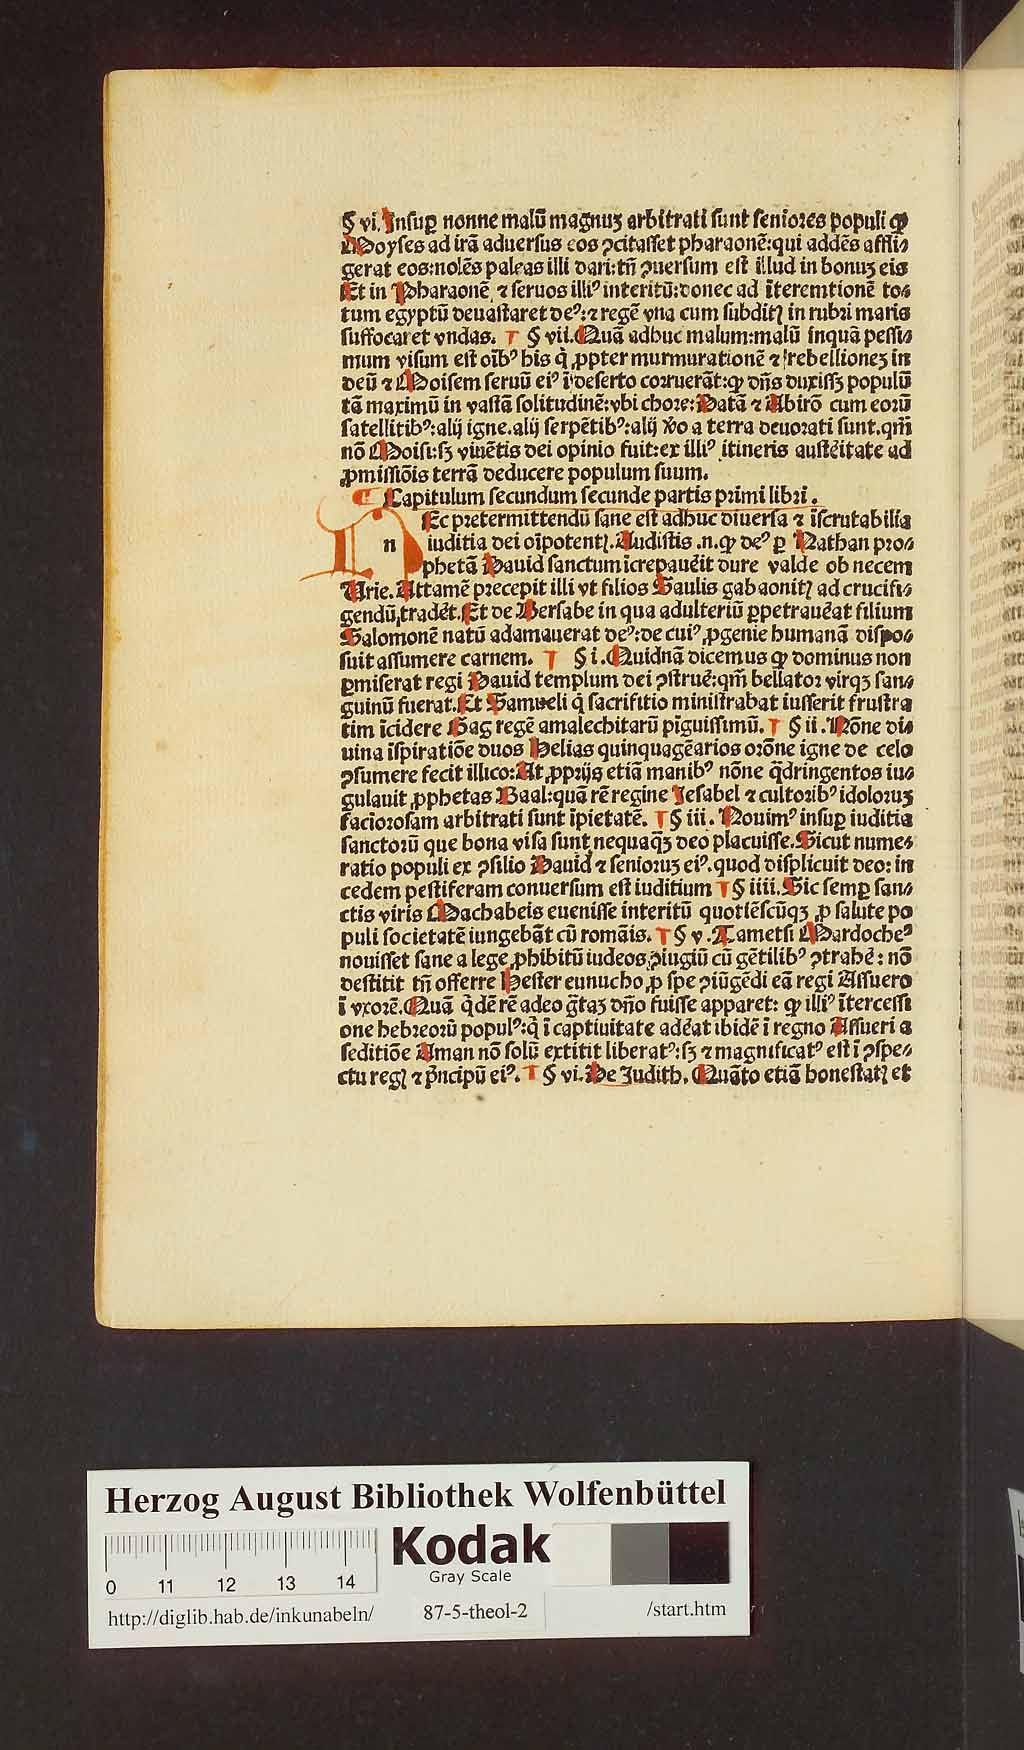 § vi. Insuꝑ nonne malū magnuȝ arbitrati sunt seniores populi ꝙ
Moyses ad irā aduersus eos ꝯcitasset pharaonē:qui addēs affli⸗
gerat eos:nolēs paleas illi dari:tn̄ ꝯuersum est illud in bonuȝ eis
Et in Pharaonē ⁊ seruos illiꝰ interitū:donec ad īteremtionē to⸗
tum egyptū deuastaret deꝰ:⁊ regē vna cum subditꝭ in rubri maris
suffocaret vndas. § vii. Quā adhuc malum:malū inquā pessi⸗
mum visum est oībꝰ his q̇ ꝓpter murmurationē ⁊ rebellioneȝ in
deū ⁊ Moisem seruū eiꝰ ī deserto corruerāt:ꝙ dn̄s duxissȝ populū
tā maximū in vastā solitudinē:vbi chore: Datā ⁊ Abirō cum eorū
satellitibꝰ:alij igne.alij serpētibꝰ:alij v̄o a terra deuorati sunt.qm̄
nō Moisi:sȝ viuētis dei opinio fuit:ex illiꝰ itineris austēitate ad
ꝓmissiōis terrā deducere populum suum.
Capitulum secundum secunde partis primi libri.
n
Ec pretermittendū sane est adhuc diuersa ⁊ īscrutabilia
iuditia dei oīpotentꝭ. Audistis .n.ꝙ deꝰ ꝑ Nathan pro⸗
phetā Dauid sanctum icrepauēit dure valde ob necem
Vrie. Attamē precepit illi vt filios Saulis gabaonitꝭ ad crucifi⸗
gendū,tradēt. Et de Bersabe in qua adulteriū ꝑpetrauēat filium
Salomonē natū adamauerat deꝰ:de cuiꝰ ꝓgenie humanā dispo⸗
suit assumere carnem. § i. Quidnā dicemus ꝙ dominus non
ꝑmiserat regi Dauid templum dei ꝯstruē:qm̄ bellator virqȝ san⸗
guinū fuerat. Et Samueli q̇ sacrifitio ministrabat iusserit frustra
tim īcidere Hag regē amalechitarū pīguissimū. § ii. Nōne di⸗
uina īspiratiōe duos Helias quinquagēarios orōne igne de celo
ꝯsumere fecit illico: At ꝓprijs etiā manibꝰ nōne q̄dringentos iu⸗
gulauit ꝓphetas Baal:quā rē regine Jesabel ⁊ cultoribꝰ idoloruȝ
faciorosam arbitrati sunt īpietatē. § iii. Nouimꝰ insuꝑ iuditia
sanctorū que bona visa sunt nequaqȝ deo placuisse. Sicut nume⸗
ratio populi ex ꝯsilio Dauid ⁊ senioruȝ eiꝰ. quod displicuit deo: in
cedem pestiferam conuersum est iuditium § iiii. Sic semꝑ san⸗
ctis viris Machabeis euenisse interitū quotiēscūqȝ ꝓ salute po
puli societatē iungebāt cū romāis. § v. Tametsi Mardocheꝰ
nouisset sane a lege ꝓhibitū iudeos ꝯiugiū cū gētilibꝰ ꝯtrahē: nō
destitit tn̄ offerre Hester eunucho ꝓ spe ꝯiūgēdi eā regi Assuero
ī vxorē. Quā q̇dē rē adeo ḡtaȝ dn̄o fuisse apparet: ꝙ illiꝰ ītercessi
one hebreorū populꝰ:q̇ ī captiuitate adēat ibidē ī regno Assueri a
seditiōe Aman nō solū extitit liberatꝰ:sȝ ⁊ magnificatꝰ est ī ꝯspe⸗
ctu regꝭ ⁊ p̄ncipū eiꝰ. § vi. De Judith. Quāto etiā honestatꝭ et
Herzog August Bibliothek Wolfenbüttel
Kodak
Gray Scale
0 11 12 13 14
http://diglib.hab.de/inkunabeln/ 87-5-theol-2 /start.htm